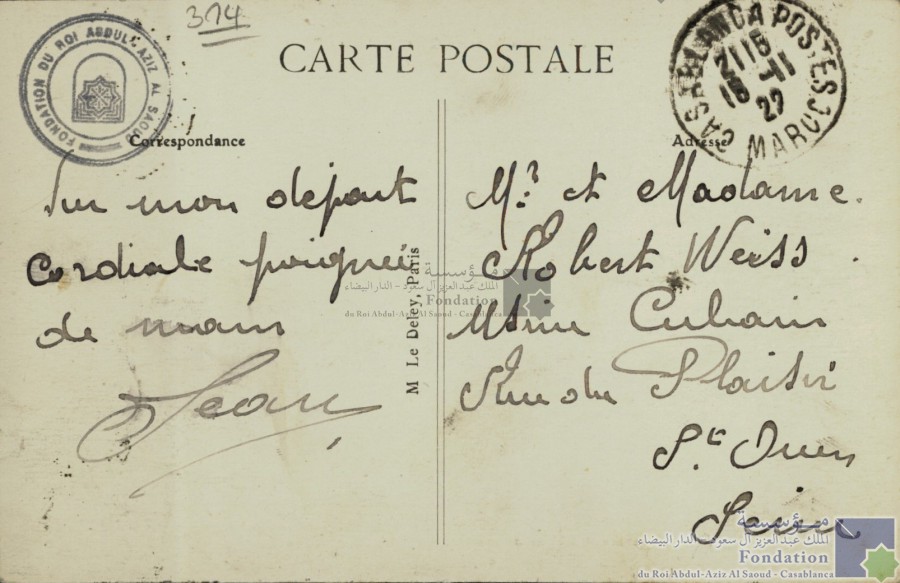 314
FONDATION DU ROI ABDUL-AZIZ AL SAOUD
CARTE POSTALE
CASABLANCA POSTES
2115
16 -11
22
MAROC
Correspondance
Sur mon départ
Cordiale poignée
de main
Jean
M Le Deley, Paris
Adresse
Mr et Madame.
Robert Weiss.
Usine
Rue du Plaisir
St Ouen
Seine
مؤسسة
الملك عبدالعزيز آل سعود - الدار البيضاء
Fondation
du Roi Abdul-Aziz Al Saoud - Casablanca
مؤسسة
الملك عبدالعزيز آل سعود - الدار البيضاء
Fondation
du Roi Abdul-Aziz Al Saoud - Casablanca